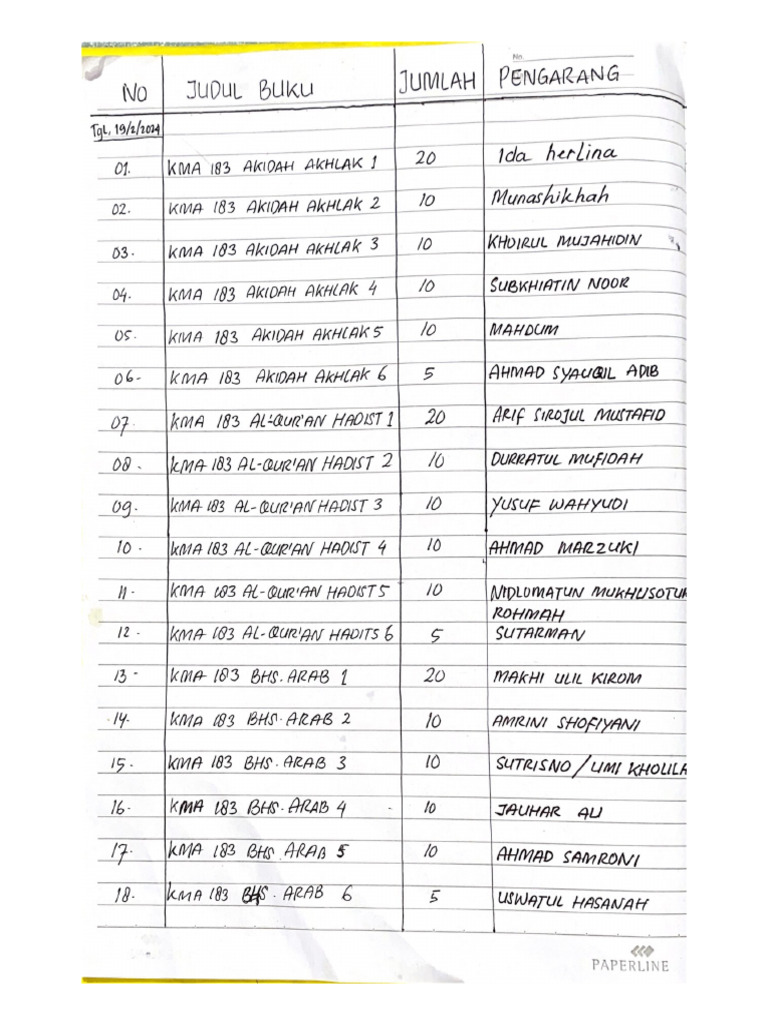 No.
NO JUDUL BUKU JUMLAH PENGARANG
TgL, 19/2/2024
01. KMA 183 AKIDAH AKHLAK 1 20 Ida herlina
02. KMA 183 AKIDAH AKHLAK 2 10 Munashikhah
03. KMA 183 AKIDAH AKHLAK 3 10 KHOIRUL MUJAHIDIN
04. KMA 183 AKIDAH AKHLAK 4 10 SUBKHIATIN NOOR
05. KMA 183 AKIDAH AKHLAK 5 10 MAHDUM
06- KMA 183 AKIDAH AKHLAK 6 5 AHMAD SYAUQIL ADIB
07. KMA 183 AL-QUR'AN HADIST 1 20 ARIF SIROJUL MUSTAFID
08. KMA 183 AL-QUR'AN HADIST 2 10 DURRATUL MUFIDAH
09. KMA 183 AL-QUR'AN HADIST 3 10 YUSUF WAHYUDI
10. KMA 183 AL-QUR'AN HADIST 4 10 AHMAD MARZUKI
11- KMA 183 AL-QUR'AN HADIST 5 10 NIDLOMATUN MUKHLISOTUR
ROHMAH
12. KMA 183 AL-QUR'AN HADITS 6 5 SUTARMAN
13- KMA 183 BHS. ARAB 1 20 MAKHI ULIL KIROM
14. KMA 183 BHS. ARAB 2 10 AMRINI SHOFIYANI
15. KMA 183 BHS. ARAB 3 10 SUTRISNO/UMI KHOLILA
16- KMA 183 BHS. ARAB 4 10 JAUHAR ALI
17. KMA 183 BHS. ARAB 5 10 AHMAD SAMRONI
18. KMA 183 BHS. ARAB 6 5 USWATUL HASANAH
PAPERLINE